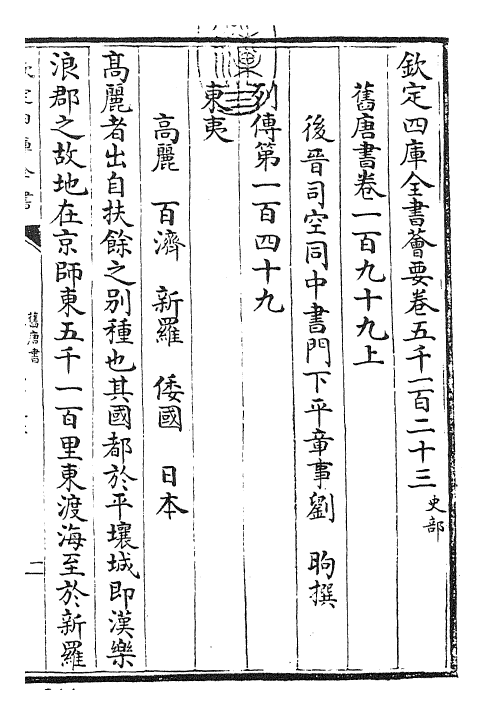 欽定四庫全書薈要卷五千一百二十三 史部
舊唐書卷一百九十九上
後晉司空同中書門下平章事劉 昫撰
列傳第一百四十九
東夷
高麗 百濟 新羅 倭國 日本
高麗者出自扶餘之别種也其國都於平壤城即漢樂
浪郡之故地在京師東五千一百里東渡海至於新羅
欽定四庫全書
舊唐書